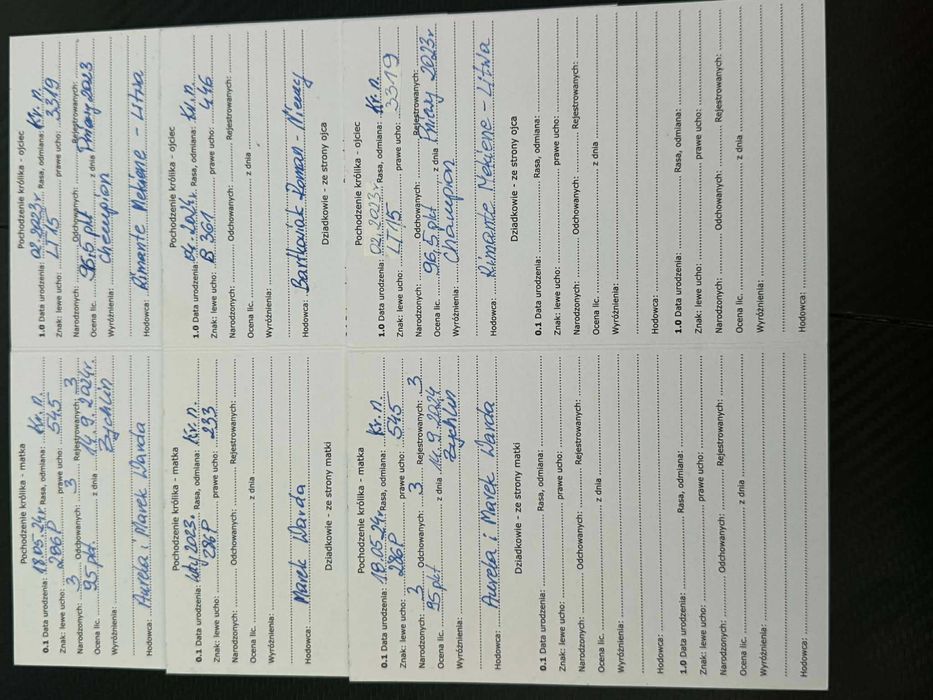 Pochodzenie królika - matka
0.1 Data urodzenia: 18.05.24r. Rasa, odmiana: Kr. n.
Znak: lewe ucho: 286P prawe ucho: 545
Narodzonych: 3 Odchowanych: 3 Rejestrowanych: 3
Ocena lic. 95 pkt. z dnia 14.9.2024r.
Wyróżnienia: Żychlin
Hodowca: Aurelia i Marek Warda
Pochodzenie królika - ojciec
1.0 Data urodzenia: 02.2023r. Rasa, odmiana: Kr. n.
Znak: lewe ucho: LT15 prawe ucho: 3319
Narodzonych: Odchowanych: Rejestrowanych:
Ocena lic. 96,5 pkt z dnia 2023
Wyróżnienia: Champion
Hodowca: Rimante Mekiene - Litwa
Pochodzenie królika - matka
0.1 Data urodzenia: luty 2023 Rasa, odmiana: Kr. n.
Znak: lewe ucho: 286P prawe ucho: 233
Narodzonych: Odchowanych: Rejestrowanych:
Ocena lic. z dnia
Wyróżnienia:
Hodowca: Marek Warda
Dziadkowie - ze strony matki
Pochodzenie królika - ojciec
1.0 Data urodzenia: 04.2021r. Rasa, odmiana: Kr. n.
Znak: lewe ucho: B361 prawe ucho: 446
Narodzonych: Odchowanych: Rejestrowanych:
Ocena lic. z dnia
Wyróżnienia:
Hodowca: Bartkowiak Roman - Niemcy
Dziadkowie - ze strony ojca
Pochodzenie królika - matka
0.1 Data urodzenia: 18.05.24r. Rasa, odmiana: Kr. n.
Znak: lewe ucho: 286P prawe ucho: 545
Narodzonych: 3 Odchowanych: 3 Rejestrowanych: 3
Ocena lic. 95 pkt z dnia 14.9.2024
Wyróżnienia: Żychlin
Hodowca: Aurelia i Marek Warda
Dziadkowie - ze strony matki
0.1 Data urodzenia: Rasa, odmiana:
Znak: lewe ucho: prawe ucho:
Narodzonych: Odchowanych: Rejestrowanych:
Ocena lic. z dnia
Wyróżnienia:
Hodowca:
1.0 Data urodzenia: Rasa, odmiana:
Znak: lewe ucho: prawe ucho:
Narodzonych: Odchowanych: Rejestrowanych:
Ocena lic. z dnia
Wyróżnienia:
Hodowca:
Pochodzenie królika - ojciec
1.0 Data urodzenia: 02.2023r. Rasa, odmiana: Kr. n.
Znak: lewe ucho: LT15 prawe ucho: 3319
Narodzonych: Odchowanych: Rejestrowanych:
Ocena lic. 96,5 pkt z dnia 2023
Wyróżnienia: Champion
Hodowca: Rimante Mekiene - Litwa
Dziadkowie - ze strony ojca
0.1 Data urodzenia: Rasa, odmiana:
Znak: lewe ucho: prawe ucho:
Narodzonych: Odchowanych: Rejestrowanych:
Ocena lic. z dnia
Wyróżnienia:
Hodowca:
1.0 Data urodzenia: Rasa, odmiana:
Znak: lewe ucho: prawe ucho:
Narodzonych: Odchowanych: Rejestrowanych:
Ocena lic. z dnia
Wyróżnienia:
Hodowca: